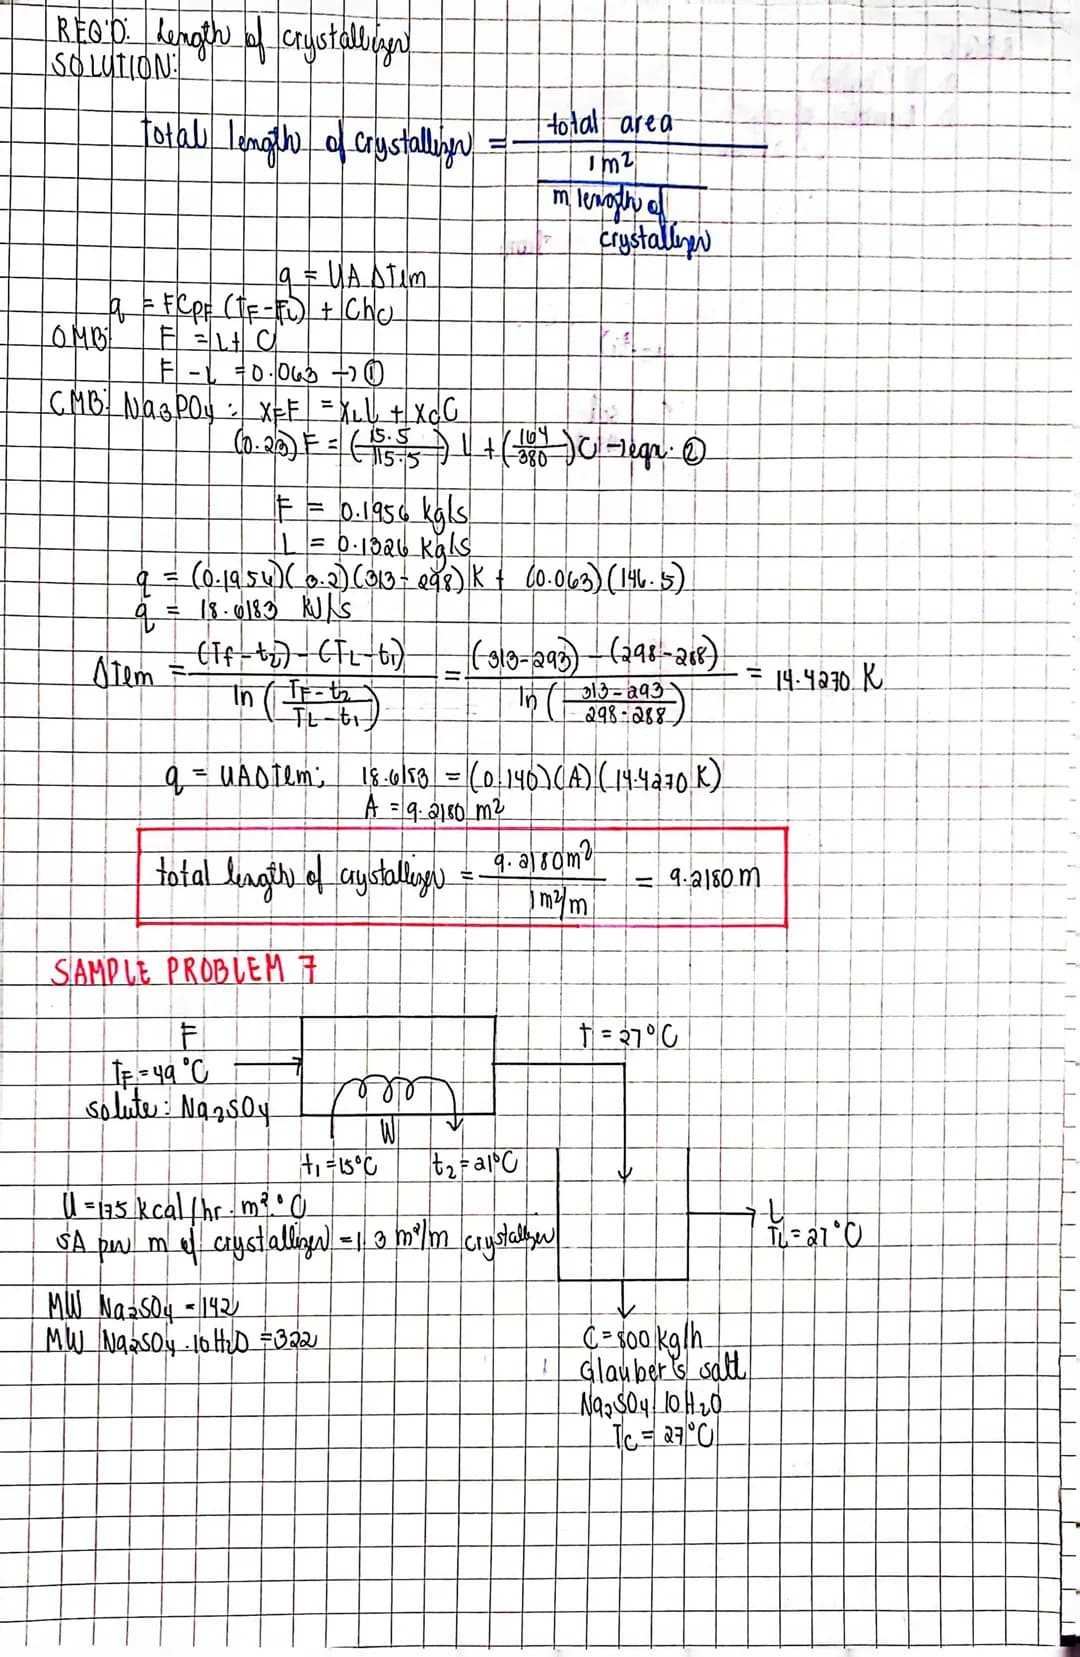 REQ'D: Length of crystallizer
SOLUTION:
Total length of crystallizer = total area
1 m²
m length of
crystallizer
q = UAΔTlm
q = FCPF (TF-TL) + Chc
OMB: F = L + C
F - L = 0.063 → ①
CMB: Na3PO4 : XFF = XLL + XCC
(0.23) F = (15.5/115.5) L + (164/380) C → eqn. ②
F = 0.1956 kg/s
L = 0.1326 kg/s
q = (0.1956)(3.2)(313-298)K + (0.063)(146.5)
q = 18.6183 kJ/s
ΔTlm = (TF-t2) - (TL-t1) / ln (TF-t2 / TL-t1) = (313-293) - (298-288) / ln (313-293 / 298-288) = 14.4270 K
q = UAΔTlm; 18.6183 = (0.140)(A)(14.4270 K)
A = 9.2180 m²
total length of crystallizer = 9.2180m² / 1 m²/m = 9.2180 m
SAMPLE PROBLEM 7
F
TF = 49 °C
solute: Na2SO4
t = 27°C
W
t1 = 15°C t2 = 21°C
U = 175 kcal/hr·m²·°C
SA per m of crystallizer = 1.3 m²/m crystallizer
L
TL = 27°C
MW Na2SO4 = 142
MW Na2SO4·10H2O = 322
C = 800 kg/h
Glauber's salt
Na2SO4·10H2O
TC = 27°C